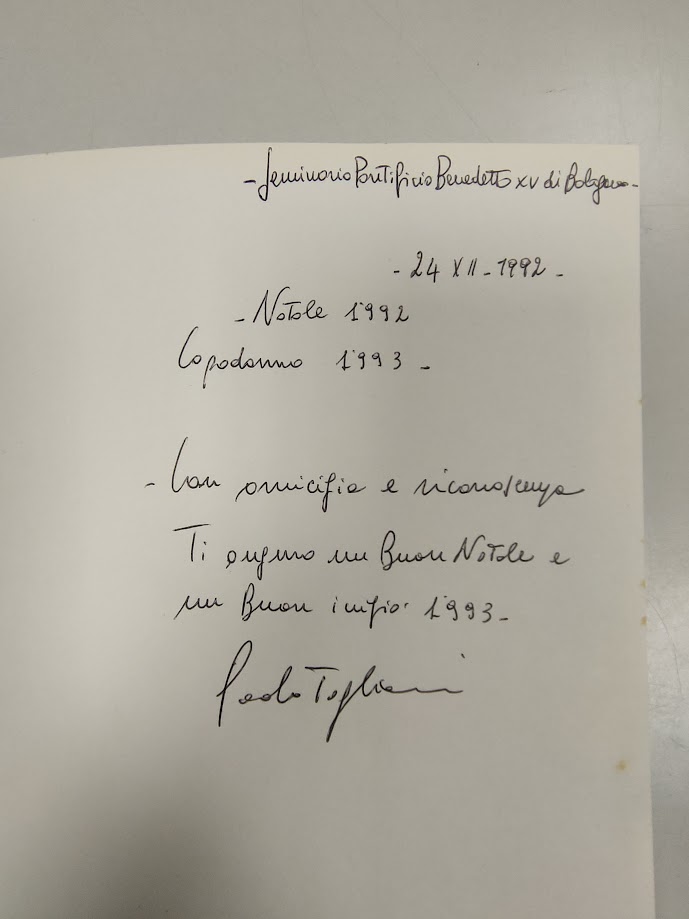 - Seminario Pontificio Benedetto XV di Bologna -
- 24 XII - 1992 -
- Natale 1992
Capodanno 1993 -
- Con amicizia e riconoscenza
Ti auguro un Buon Natale e
un Buon inizio 1993 -
Paolo